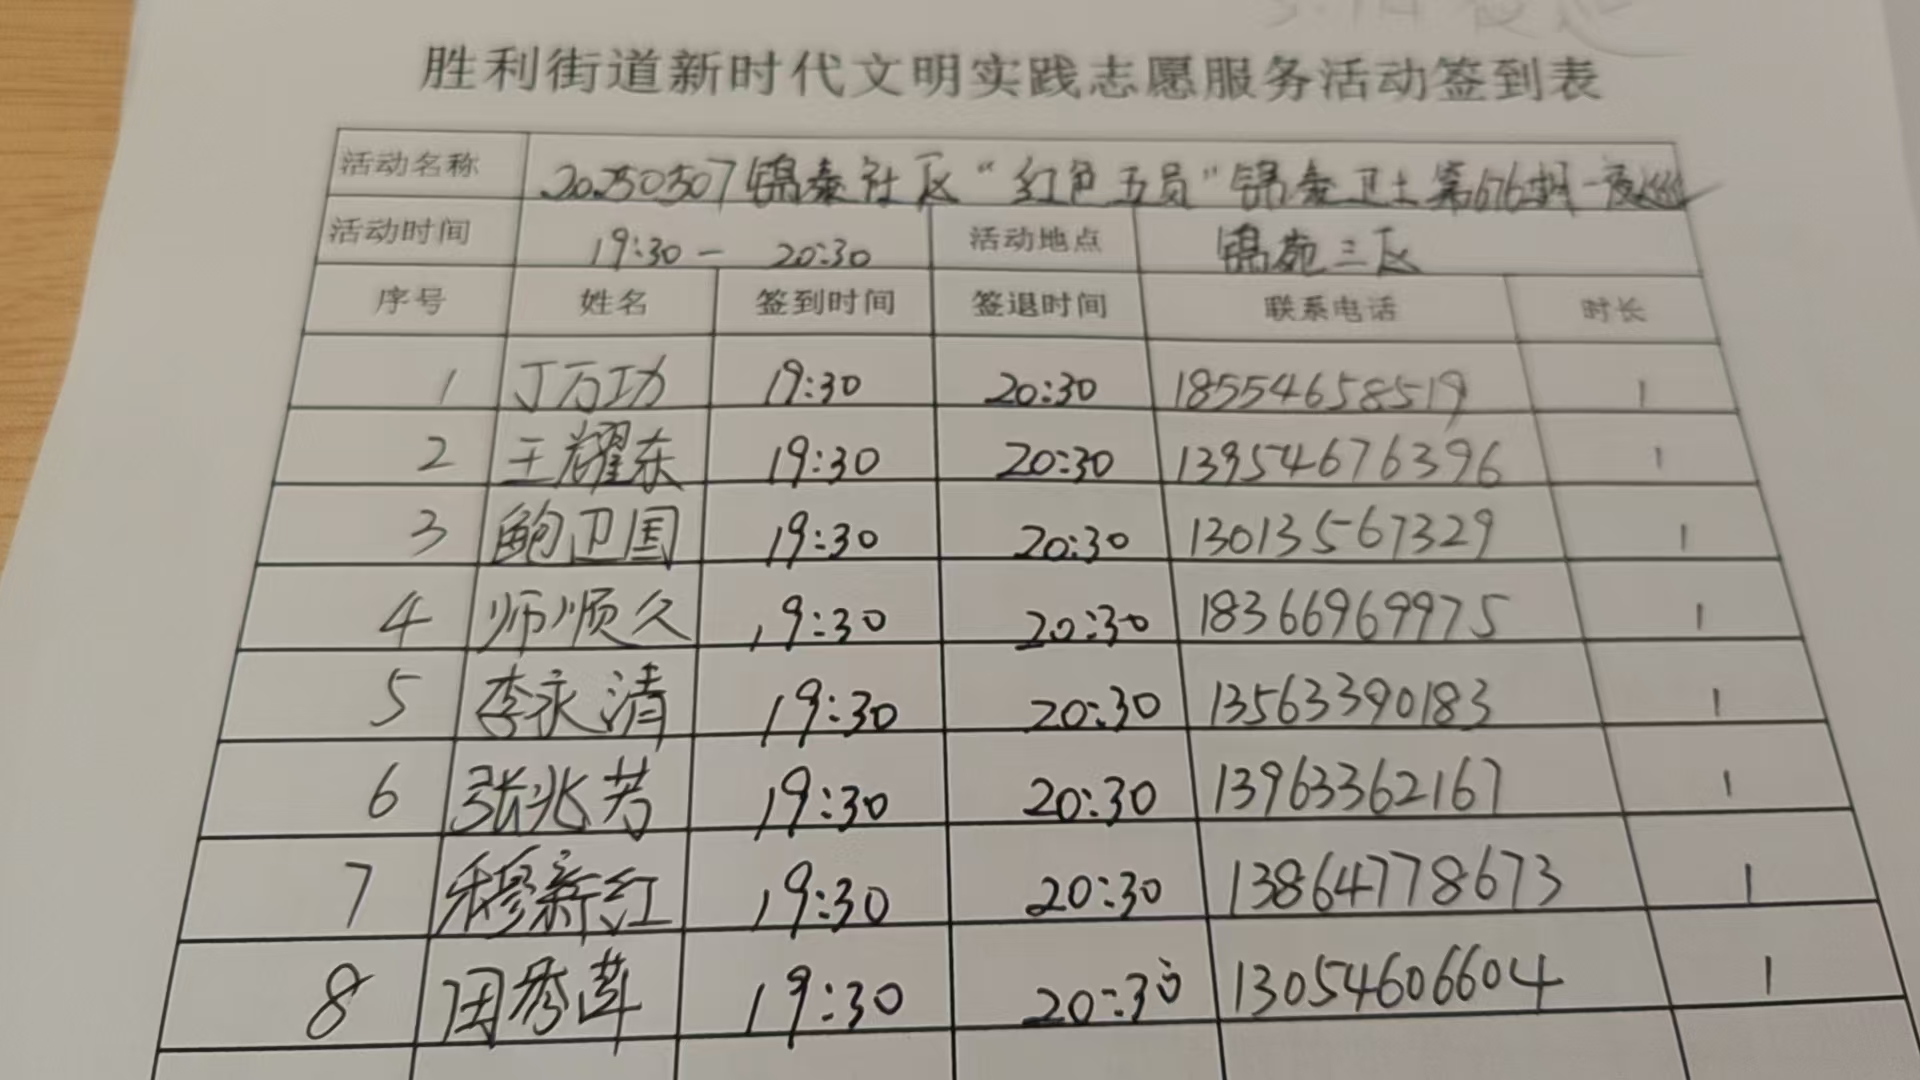 胜利街道新时代文明实践志愿服务活动签到表
活动名称 20250507锦泰社区“红色五员”锦泰卫士第676期-夜巡
活动时间 19:30- 20:30 活动地点 锦苑三区
序号 姓名 签到时间 签退时间 联系电话 时长
1 丁万功 19:30 20:30 18554658519 1
2 王耀东 19:30 20:30 13954676396 1
3 鲍卫国 19:30 20:30 13013567329 1
4 师顺久 19:30 20:30 18366969975 1
5 李永清 19:30 20:30 13563390183 1
6 张兆芳 19:30 20:30 13963362167 1
7 穆新红 19:30 20:30 13864778673 1
8 田秀莲 19:30 20:30 13054606604 1